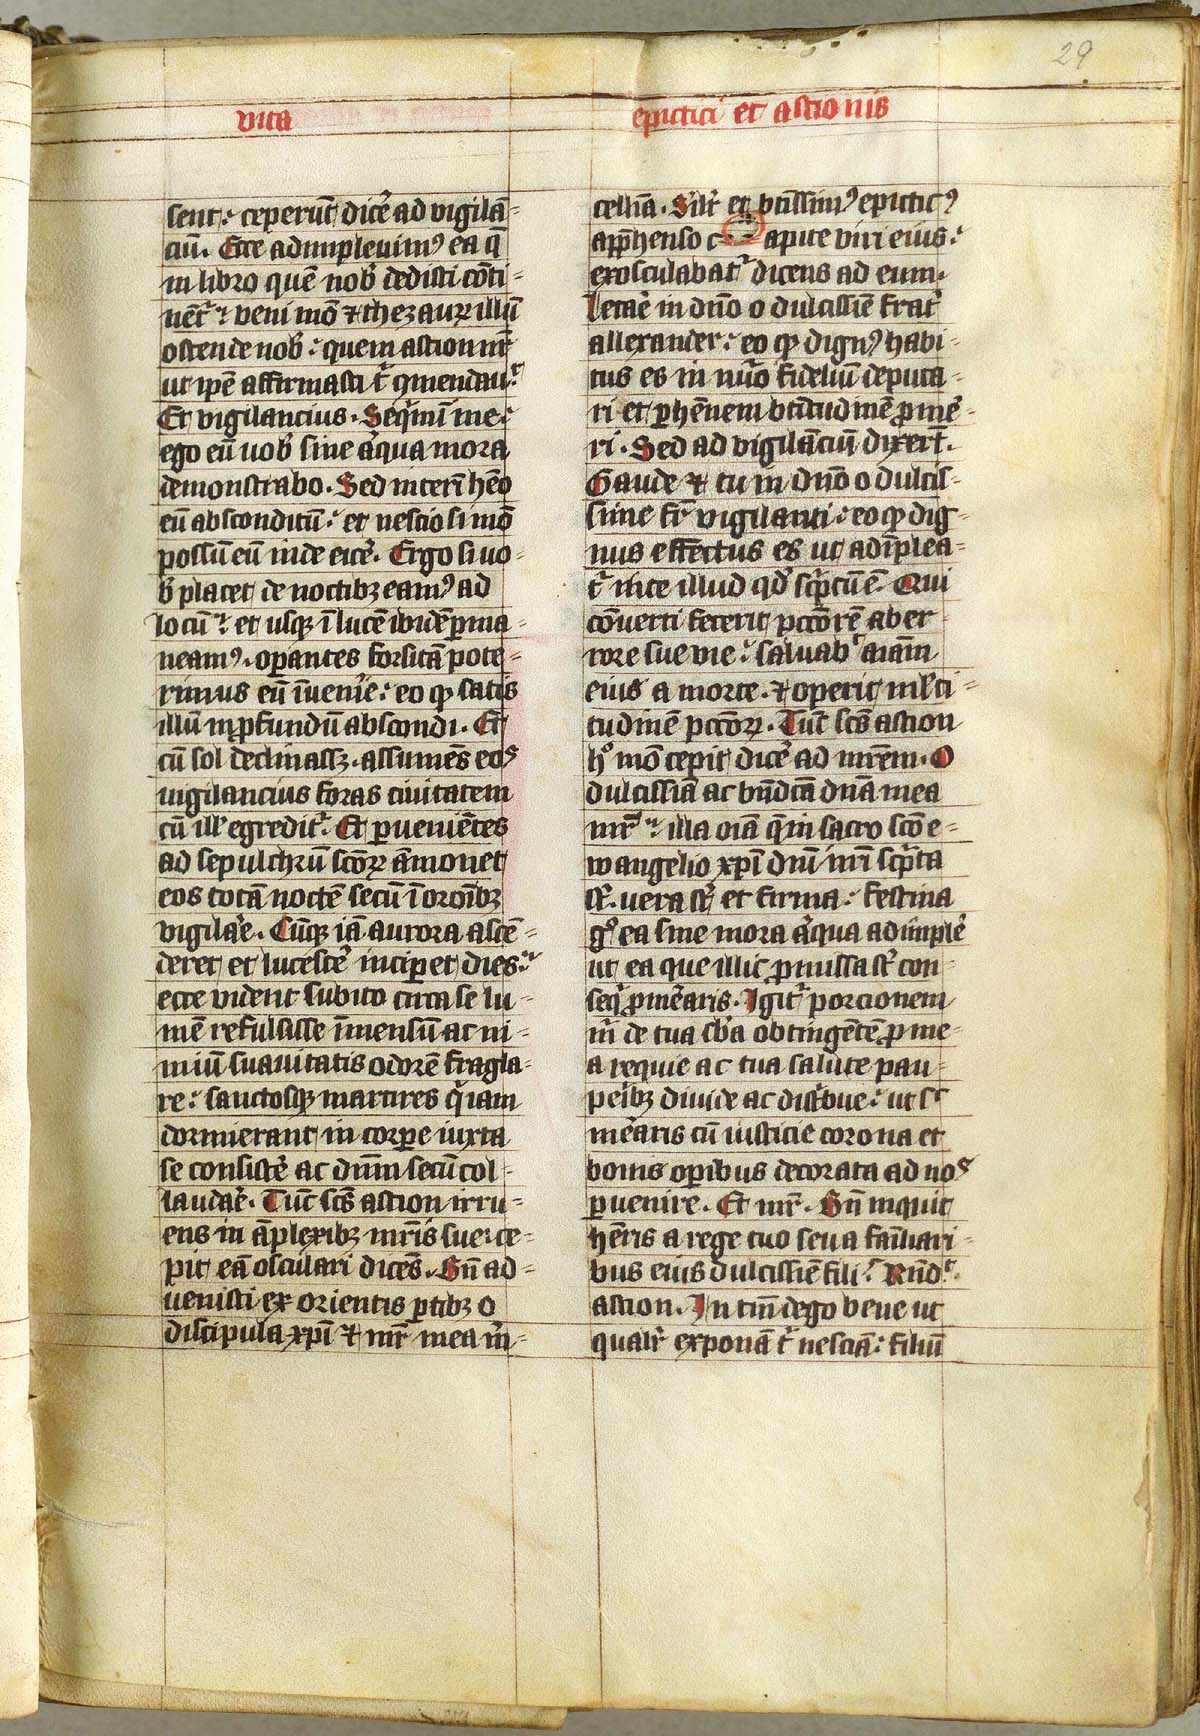 29
vita
epictici et astionis
sent : ceperūt dicē ad vigilā=
ciū. Ecce adimplevimꝰ ea q̄
in libro quē nob̄ dedisti cōti=
nēt᷑ : veni mō ⁊ thezaurꝝ illū
ostende nob̄ : quem astion nr̄
ut ipē affirmasti t᷑ ꝯmendau᷑.
Et vigilancius. Seq̄mī me :
ego eū uob̄ sine aͣqua mora
demonstrabo. Sed interī hēo
eū absconditū : et nescio si mō
possū eū inde eicē. Ergo si uo=
b̄ placet de noctibꝫ eamꝰ ad
locū : et usqꝫ ī lucē ibidē ꝑma=
neamꝰ. oꝑantes forsitā pote=
rimus eū īvenīe : eo ꝙ satis
illū in ꝓfundū abscondi. Et
cū sol declinassꝫ. assumēs eos
uigilancius foras civitatem
cū ill᷑ egredit᷑. Et ꝑveniētes
ad sepulchrū scōꝝ āmonet
eos totā noctē secū ī oroībꝫ
vigilaͣe. Cūqꝫ iā aurora ascē=
deret et lucescē inciꝑet dies :
ecce vident subito circa se lu=
mē refulsisse īmensū ac ni=
miū suavitatis odorē fragla=
re : sanctosqꝫ martires q̄ iam
dormierant in corꝑe iuxta
se consistē ac dn̄m secū col=
laudaͣe. Tūc scs̄ astion irru=
ens in āplexibꝫ mr̄is sue : ce=
pit eā osculari dicēs. Bn̄ ad=
venisti ex orientis ꝑtibꝫ o
discipula xp̄i ⁊ mr̄ mea m̄=
cellīa. Silr̄ et btīssimꝰ epicticꝰ
appͣhenso c apite viri eius :
exosculabat᷑ dicens ad eum.
Letaͣe in dn̄o o dulcissīe frat᷑
allexander : eo ꝙ dignꝰ habi=
tus es in nūo fideliū deputa=
ri et ꝑhēnem btītudinē ꝓmē=
ri. Sed ad vigilāciū dixert̄.
Gaude ⁊ tu in dn̄o o dulcis=
sime fr̄ vigilanti : eo ꝙ dig=
nus effectus es ut adīplea=
t᷑ in te illud qd̄ scp̄tū ē. Qui
cōverti fecerit pctōrē ab er=
rore sue vie : salvab᷑ aīam
eius a morte. ⁊ operit ml̄ti=
tudinē pctōꝝ. Tūc scs̄ astion
h̊ mō cepit dicē ad mr̄em. O
dulcissīa ac bn̄dcā dn̄a mea
mr̄ : illa oīa q̄ in sacro scō e=
wangelio xp̄i dn̄i nr̄i scp̄ta
st᷑. vera st᷑ et firma : festina
g̊ ea sine mora aͣqua adimplē
ut ea que illic ꝓmissa st᷑ con=
seq̄ ꝓmēaris. Igit᷑ porcionem
m̄ de tua sb̄a obtingētē ꝓ me=
a requie ac tua salute pau=
ꝑibꝫ divide ac distͥbue : ut sc
mēaris cū iusticie corona et
bonis oꝑibus decorata ad nos
ꝑvenire. Et mr̄. Bn̄ inquit
hēris a rege tuo seu a familiari=
bus eius dulcissīe fili : Rn̄d᷑.
astion. In tm̄ dego bene ut
qualr̄ exponā t᷑ nesciā : filiū